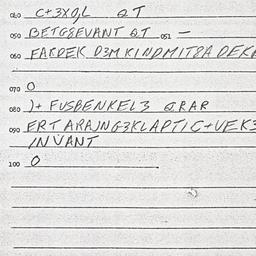 040 C+3XO,L QT
050 BETG8EVANT QT 051 —
060 FARDEK D3M KINDMIT8A DEK
070 O
080 )+ FUSBENKEL3 QRAR
090 ERT ARAJNG3KLAPTIC+VEK3
INVANT
100 O